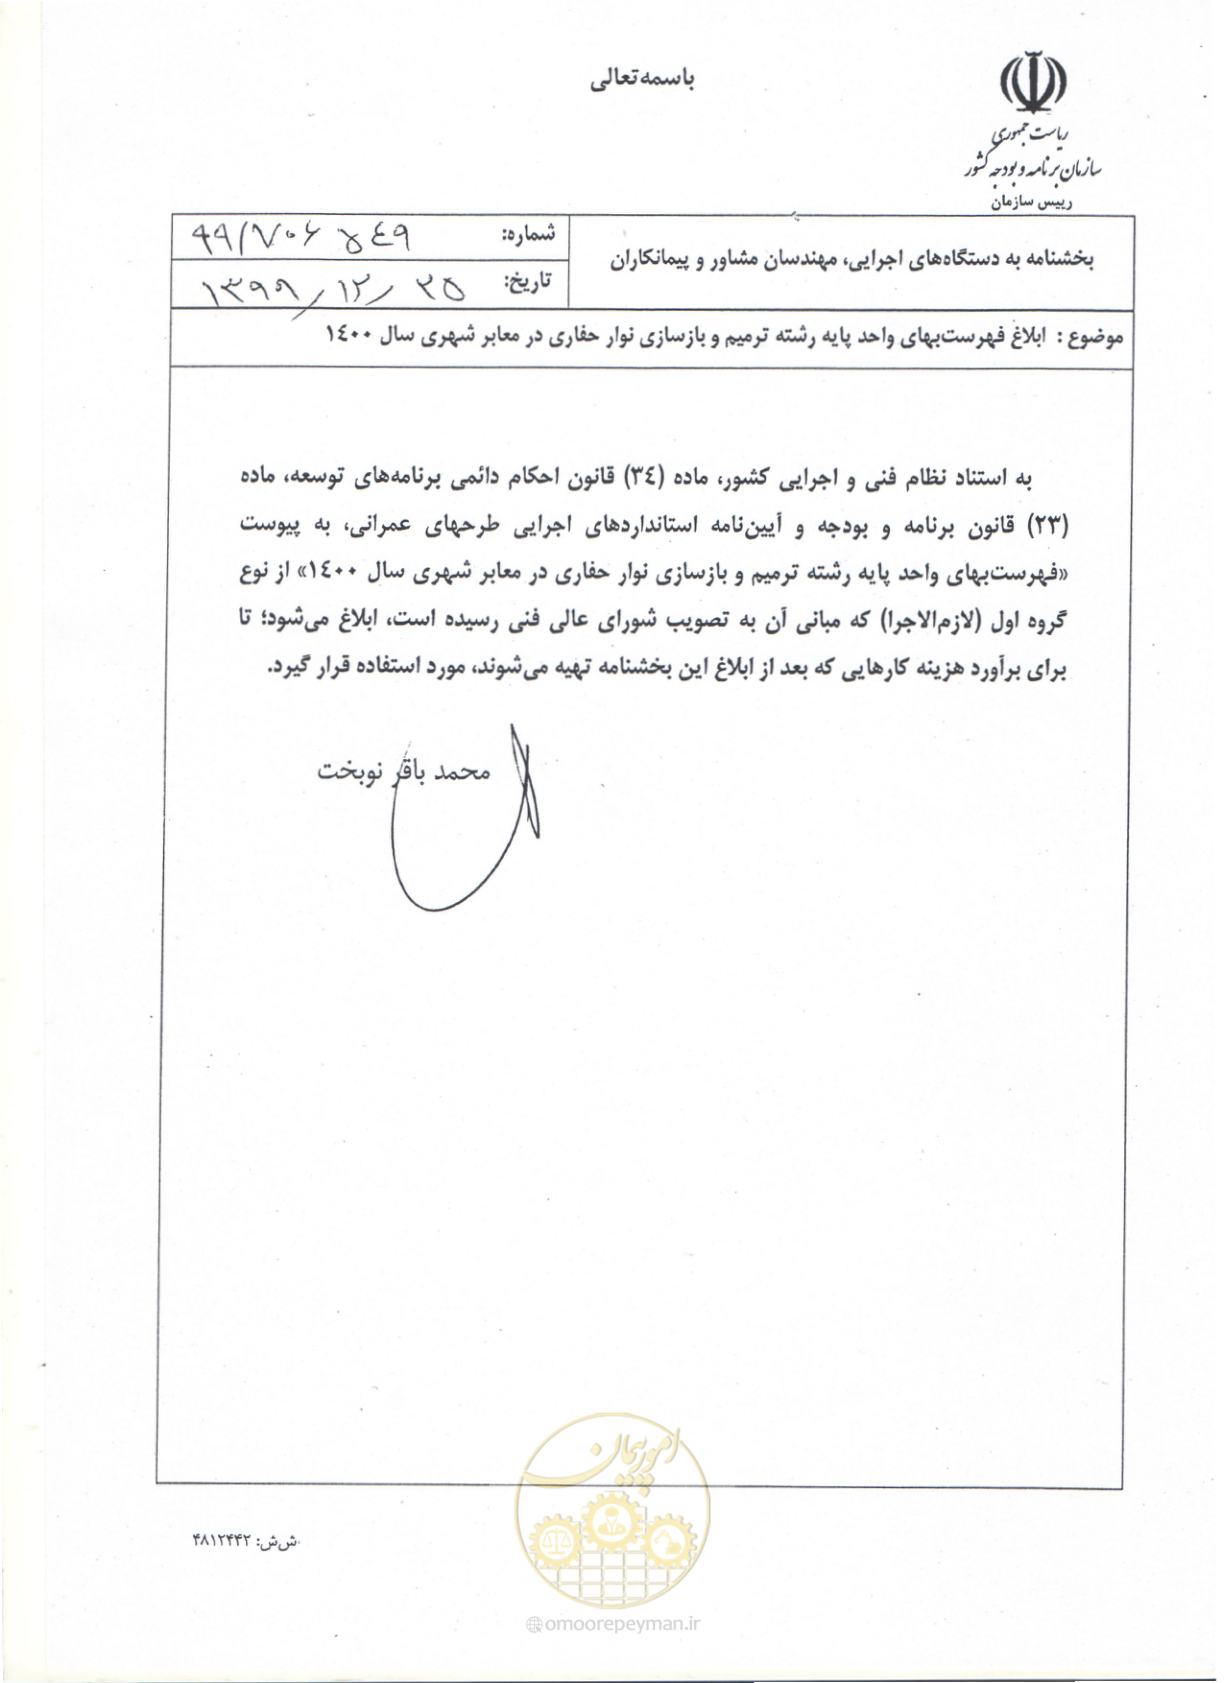 باسمه تعالی
ریاست جمهوری
سازمان برنامه و بودجه کشور
رییس سازمان
بخشنامه به دستگاه‌های اجرایی، مهندسان مشاور و پیمانکاران
شماره: ۹۹/۷۰۶۵۴۹
تاریخ: ۱۳۹۹/۱۲/۲۵
موضوع : ابلاغ فهرست‌بهای واحد پایه رشته ترمیم و بازسازی نوار حفاری در معابر شهری سال ۱۴۰۰
به استناد نظام فنی و اجرایی کشور، ماده (۳۴) قانون احکام دائمی برنامه‌های توسعه، ماده
(۲۳) قانون برنامه و بودجه و آیین‌نامه استانداردهای اجرایی طرحهای عمرانی، به پیوست
«فهرست‌بهای واحد پایه رشته ترمیم و بازسازی نوار حفاری در معابر شهری سال ۱۴۰۰» از نوع
گروه اول (لازم‌الاجرا) که مبانی آن به تصویب شورای عالی فنی رسیده است، ابلاغ می‌شود؛ تا
برای برآورد هزینه کارهایی که بعد از ابلاغ این بخشنامه تهیه می‌شوند، مورد استفاده قرار گیرد.
محمد باقر نوبخت
امور پیمان
ش‌ش: ۴۸۱۲۴۴۲
omoorepeyman.ir